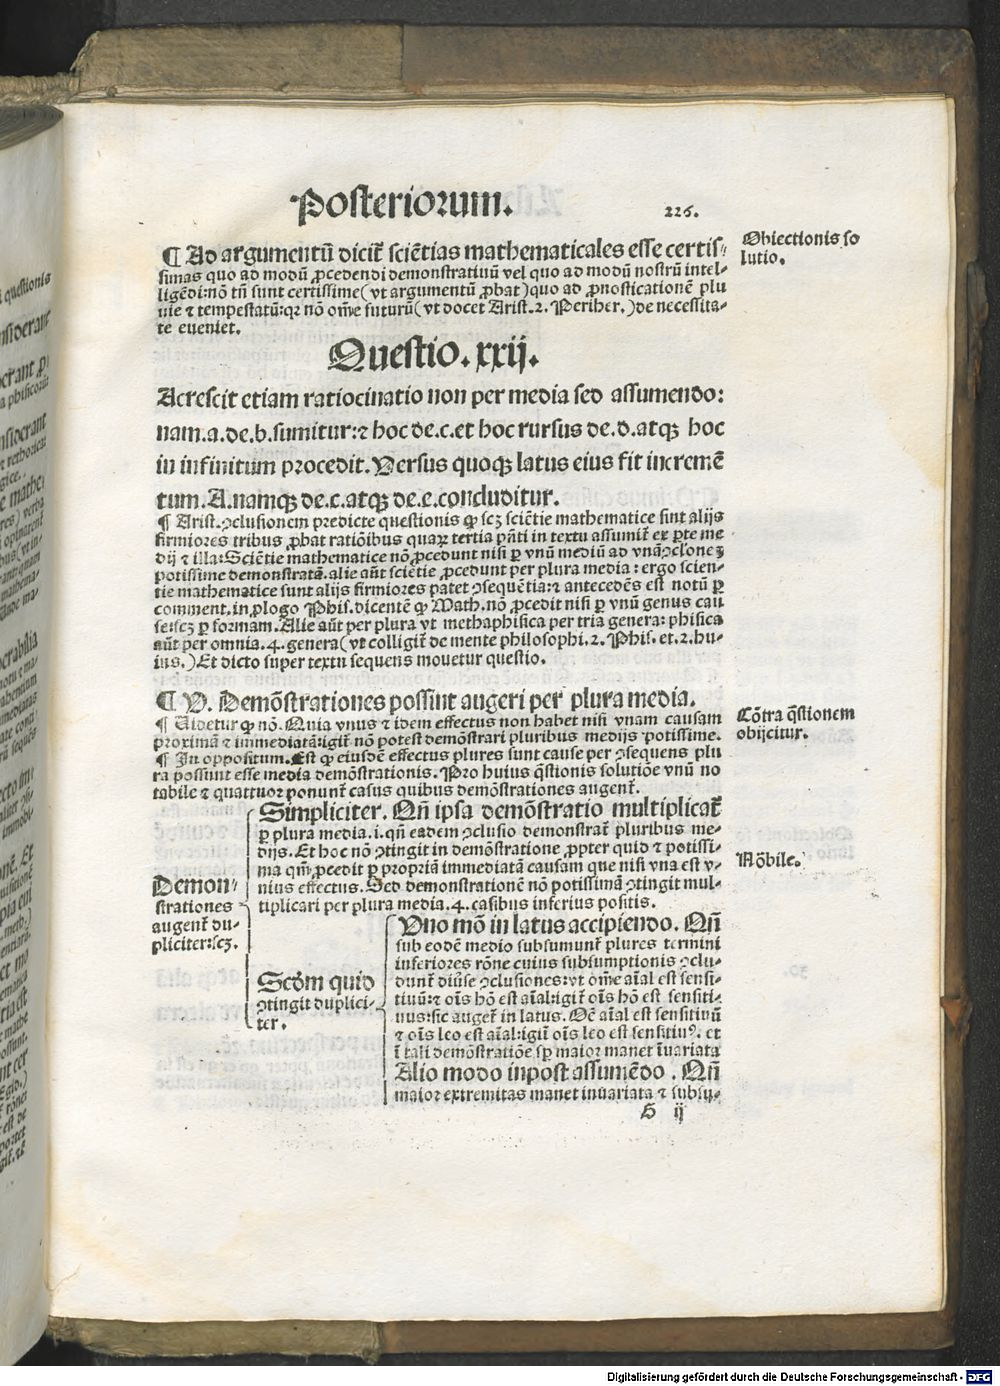 Posteriorum.
226.
¶ Ad argumentū dicit̄ sciētias mathematicales esse certis-
simas quo ad modū ꝓcedendi demonstratiuū vel quo ad modū nostrū intel-
ligēdi: nō tn̄ sunt certissime (vt argumentū ꝓbat) quo ad ꝓnosticationē plu
uie ⁊ tempestatū: qꝛ nō om̄e futurū (vt docet Arist. 2. Periher.) de necessita-
te eueniet.
Obiectionis so
lutio.
Questio. xxij.
Acrescit etiam ratiocinatio non per media sed assumendo:
nam .a. de .b. sumitur: ⁊ hoc de .c. et hoc rursus de .d. atqꝫ hoc
in infinitum procedit. Versus quoqꝫ latus eius fit incremē
tum. A. namqꝫ de .c. atqꝫ de .e. concluditur.
¶ Arist. ꝯclusionem predicte questionis ꝙ scꝫ sciētie mathematice sint alijs
firmiores tribus ꝓbat ratiōibus quaꝝ tertia pn̄ti in textu assumit̄ ex ꝑte me
dij ⁊ est illa: Sciētie mathematice nō ꝓcedunt nisi ꝑ vnū mediū ad vnā ꝯclone ꝫ
potissime demonstratā. alie aūt sciētie ꝓcedunt per plura media: ergo scien-
tie mathematice sunt alijs firmiores patet ꝯsequētia: ⁊ antecedēs est notū ꝑ
comment. in ꝓlogo Phis. dicentē ꝙ Math. nō ꝓcedit nisi ꝑ vnū genus cau
se: scꝫ ꝑ formam. Alie aūt per plura vt methaphisica per tria genera: phisica
aūt per omnia .4. genera (vt colligit̄ de mente philosophi .2. Phis. et .2. hu-
ius.) Et dicto super textu sequens mouetur questio.
¶ V. Demōstrationes possint augeri per plura media.
¶ Videtur ꝙ nō. Quia vnus ⁊ idem effectus non habet nisi vnam causam
proximā ⁊ immediatā: igit̄ nō potest demōstrari pluribus medijs potissime.
¶ In oppositum. Est ꝙ eiusdē effectus plures sunt cause per ꝯsequens plu
ra possunt esse media demōstrationis. Pro huius q̄stionis solutiōe vnū no
tabile ⁊ quattuor ponunt̄ casus quibus demōstrationes augent̄.
Cōtra q̄stionem
obijcitur.
Demon-
strationes
augent̄ du-
pliciter: scꝫ.
Simpliciter. Qn̄ ipsa demōstratio multiplicat̄
ꝑ plura media. i. qn̄ eadem ꝯclusio demonstrat̄ pluribus me-
dijs. Et hoc nō ꝯtingit in demōstratione ꝓpter quid ⁊ potissi-
ma qm̄ ꝓcedit ꝑ propriā immediatā causam que nisi vna est v-
nius effectus. Sed demōstrationē nō potissimā ꝯtingit mul-
tiplicari per plura media .4. casibus inferius positis.
Nōbile.
Scd̄m quid
ꝯtingit duplici-
ter.
Vno mō in latus accipiendo. Qn̄
sub eodē medio subsumunt̄ plures termini
inferiores rōne cuius subsumptionis ꝯclu-
dunt̄ diuīse ꝯclusiones: vt om̄e aīal est sensi-
tiuū: ⁊ oīs hō est aīal: igit̄ oīs hō est sensiti-
uus: sic auget̄ in latus. Oē aīal est sensitiuū
⁊ oīs leo est aīal: igit̄ oīs leo est sensitiuꝰ. et
ī tali demōstratiōe sꝑ maior manet īuariata
Alio modo inpost assumēdo. Qn̄
maior extremitas manet inuariata ⁊ subij-
S ij
Digitalisierung gefördert durch die Deutsche Forschungsgemeinschaft - DFG